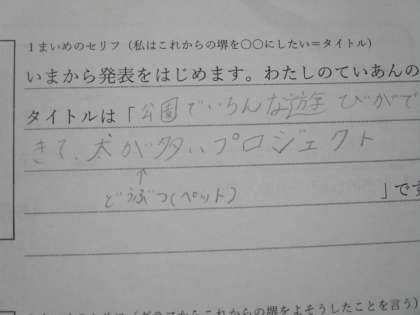 1まいめのセリフ（私はこれからの堺を〇〇にしたい＝タイトル）
いまから発表をはじめます。わたしのていあんの
タイトルは「公園でいろんな遊びができ
きて、犬が多いプロジェクト
どうぶつ(ペット)
」です